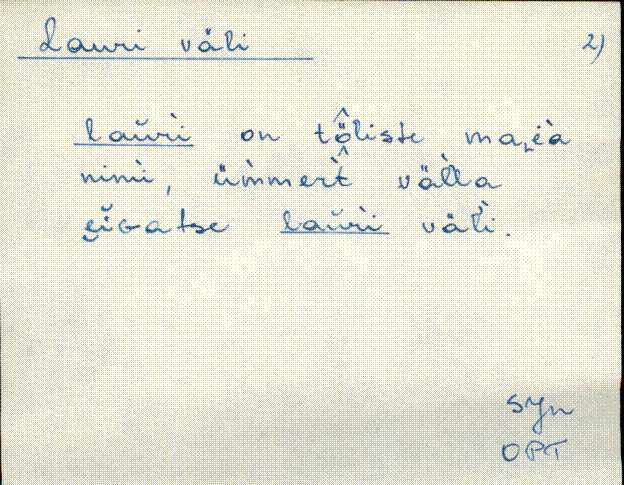 Lauri väli 2)
lauri on tõ̭liste maea
nimi, ümmert välla
eigatse lauri väli.
syn
OPT